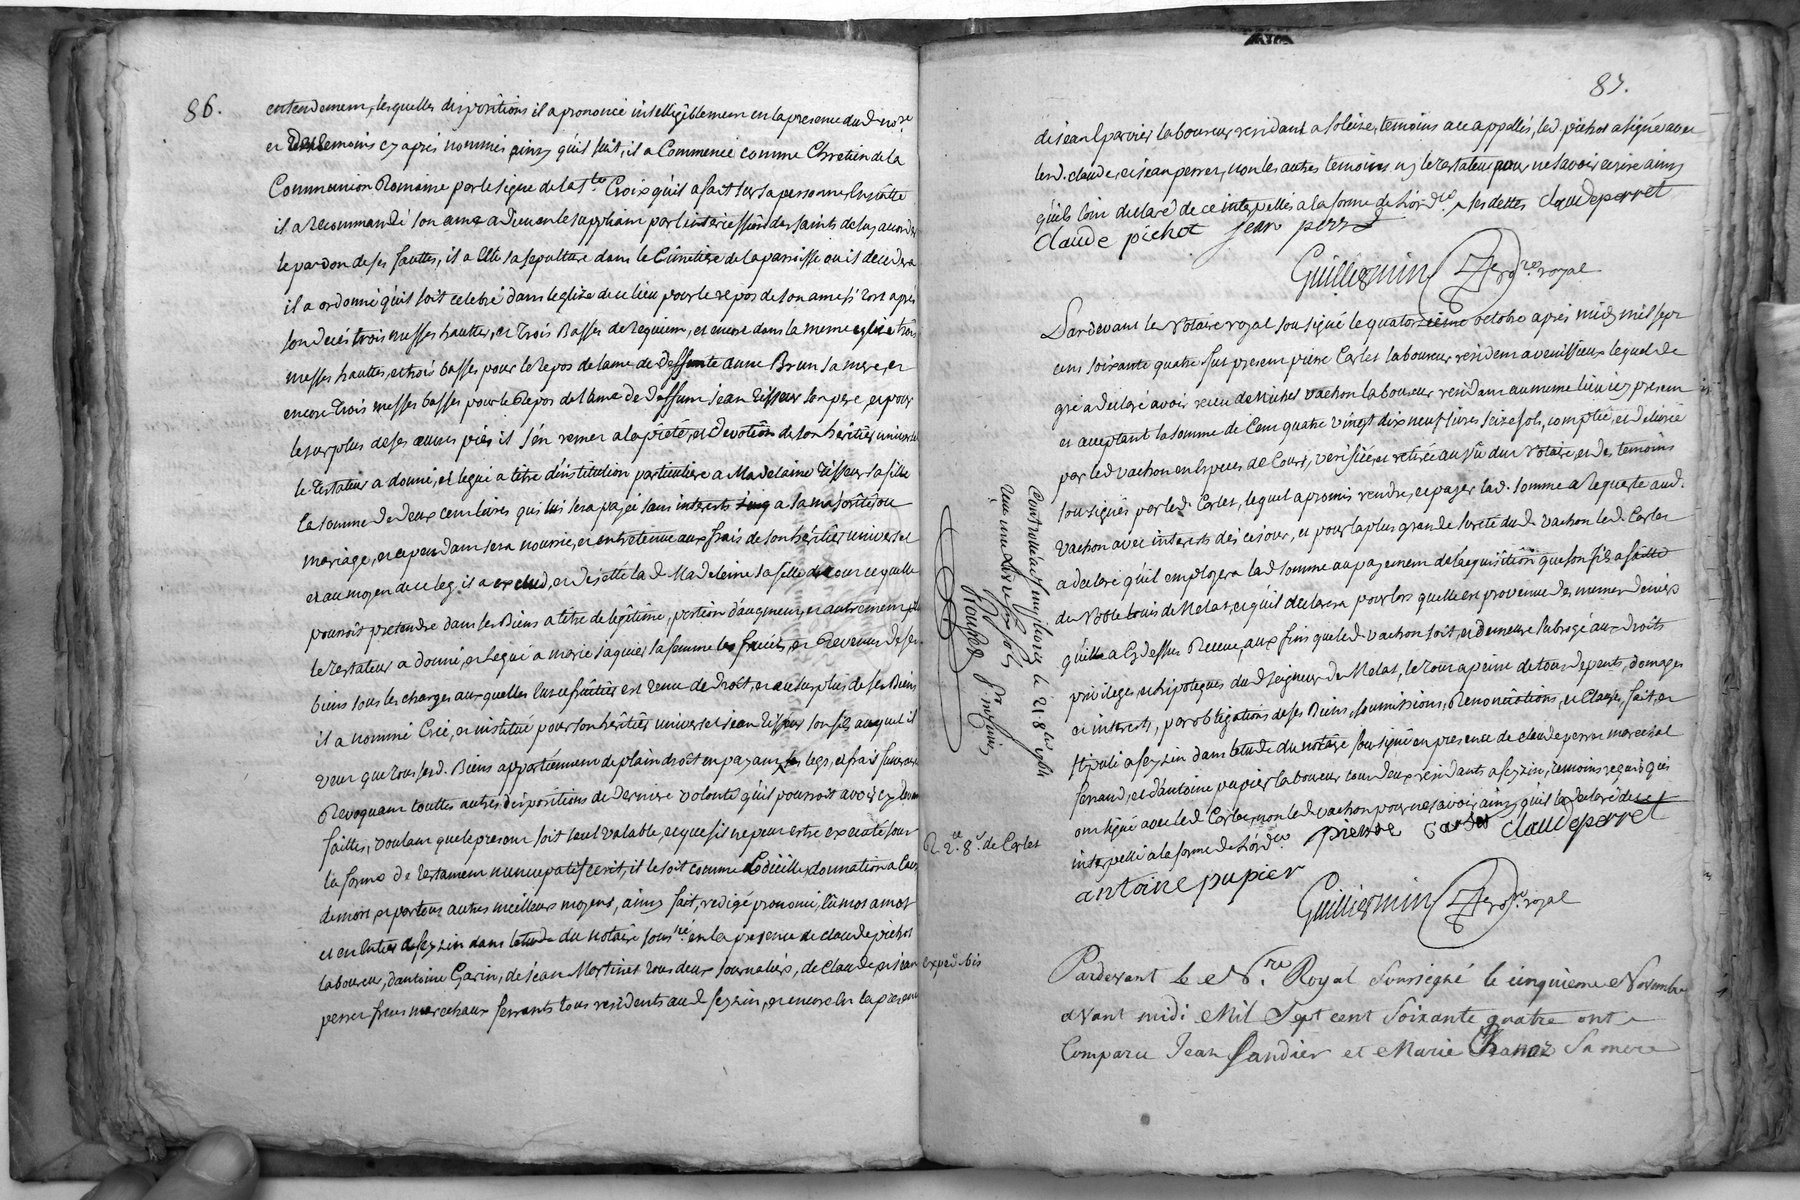 86.
entendement, lesquelles dispositions il a prononcé intelligiblement en la presence dud. no.re
et temoins cy après nommés ainsy qu'il suit, il a Commencé comme Chretien de la
Communion Romaine par le signe de la Ste Croix qu'il a fait sur sa personne, Ensuitte
il a recommandé son ame a Dieu en le suppliant par l'intercession des saints de luy accorder
le pardon de ses fauttes, il a Elu sa sepulture dans le Cimetiere de la paroisse ou il decedera
il a ordonné qu'il soit celebré dans leglize de ce lieu pour le repos de son ame si tost après
son decés trois messes hauttes, et trois Basses de requiem, et encore dans la meme eglize trois
messes hauttes, et trois basses, pour le Repos de lame de deffunte anne Brun sa mere, et
encore trois messes basses pour le Repos de lame de deffunt jean Tisseur son pere, et pour
le surplus de ses œuvres pies il s'en remet a la pieté, et devotion de son héritier universel
le testateur a donné, et legué a titre d'institution particuliere a Madelaine Tisseur sa fille
la somme de deux cent livres qui lui sera payée sans interests a sa majorité ou
mariage, et cependant sera nourrie, et entretenue aux frais de son héritier universel
et au moyen de ce leg il a exclud, et la d. Madeleine sa fille de tout ce quelle
pourroit pretendre dans ses Biens a titre de légitime, portion d'augment, et autrement
le testateur a donné, et Legué a marie jaquier sa femme les fruits, et Revenus de ses
biens sous les charges aux quelles l'usufruitier est tenu de droit, et au surplus de ses Biens
il a nommé Créé, et institué pour son héritier universel jean Tisseur son fils auquel il
veut que tous sesd. Biens appartiennent de plain droit en payant les legs, et frais funeraux
Revoquant touttes autres dispositions de derniere volonté qu'il pourroit avoir cy devant
faittes, voulant que le present soit seul valable, et que s'il ne peut estre executé sous
la forme de testament nuncupatif ecrit, il le soit comme Codicille, donnation a cause
de mort, et par tous autres meilleurs moyens, ainsy fait, redigé prononcé, lû mot a mot
et en entier a seyzin dans letude du notaire sous.né en la presence de claude pichot
laboureur, d'antoine Garin, de jean Martinet tous deux journaliers, de Claude, et jean
perret freres marechaux ferrants tous residents aud. seyzin, et encore en la presence
87.
de jean Eparvier laboureur residant a soleize, temoins a ce appellés, led. pichot a signé avec
lesd. claude, et jean perret, non les autres temoins ny le testateur pour ne savoir ecrire ainsy
qu'ils l'ont declaré de ce interpellés a la forme de l'ord.ce claude perret
claude pichot jean perret
Guilliermin No.re royal
Pardevant le Notaire royal sousigné le quatorzieme octobre après midy mil sept
cent soixante quatre fut present pierre Carlet laboureur resident a venissieux lequel de
gré a declaré avoir receu de Michel vachon laboureur residant au meme lieu icy present
et acceptant la somme de Cent quatre vingt dix neuf livres seize sols, comptée, et delivrée
par led. vachon en Especes de Cours, verifiée, et retirée au vû du Notaire, et des temoins
sousignés par led. Carlet, lequel a promis rendre, et payer lad. somme a Requeste aud.
vachon avec interests dés ce jour, et pour la plus grande sureté dud. vachon led. Carlet
a declaré qu'il employera lad somme au payement de l'acquisition que son fils a faitte
de Noble Louis de Melat, et qu'il declarera pour lors quelle est provenue des memes deniers
qu'il a cy dessus Receus, aux fins que led. vachon soit, et demeure subrogé aux droits
privilege, et hipoteques dud. seigneur de Melat, le tout a peine de tous depents, domages
et interests, par obligations de ses Biens, soumissions, Renonciations, et Clauses, fait, et
stipulé a seyzin dans letude du notaire sousigné en presence de claude perret marechal
ferrand, et d'antoine pupier laboureur tous deux residants a seyzin, temoins requis qui
ont signé avec led. Carlet, non led. vachon pour ne savoir ainsy qu'il l'a declaré de ce
interpellé a la forme de l'ord.ce pierre carlet claude perret
antoine pupier
Guilliermin No.re royal
Controllé a St simphorien le 21 8bre 1764
Reçu une livre sols
R. 2. 8. de Carlet
exped. bis
Pardevant Le N.re Royal Soussigné le cinquieme Novembre
avant midi Mil Sept cent Soixante quatre ont
Comparu Jean Sandier et Marie Chanoz Sa mere